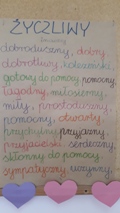 ŻYCZLIWY
dobroduszny, dobry,
dobrotliwy, koleżeński,
gotowy do pomocy, pomocny,
łagodny, miłosierny,
miły, prostoduszny,
pomocny, otwarty,
przychylny, przyjazny,
przyjacielski, serdeczny,
skłonny do pomocy,
sympatyczny, uczynny,